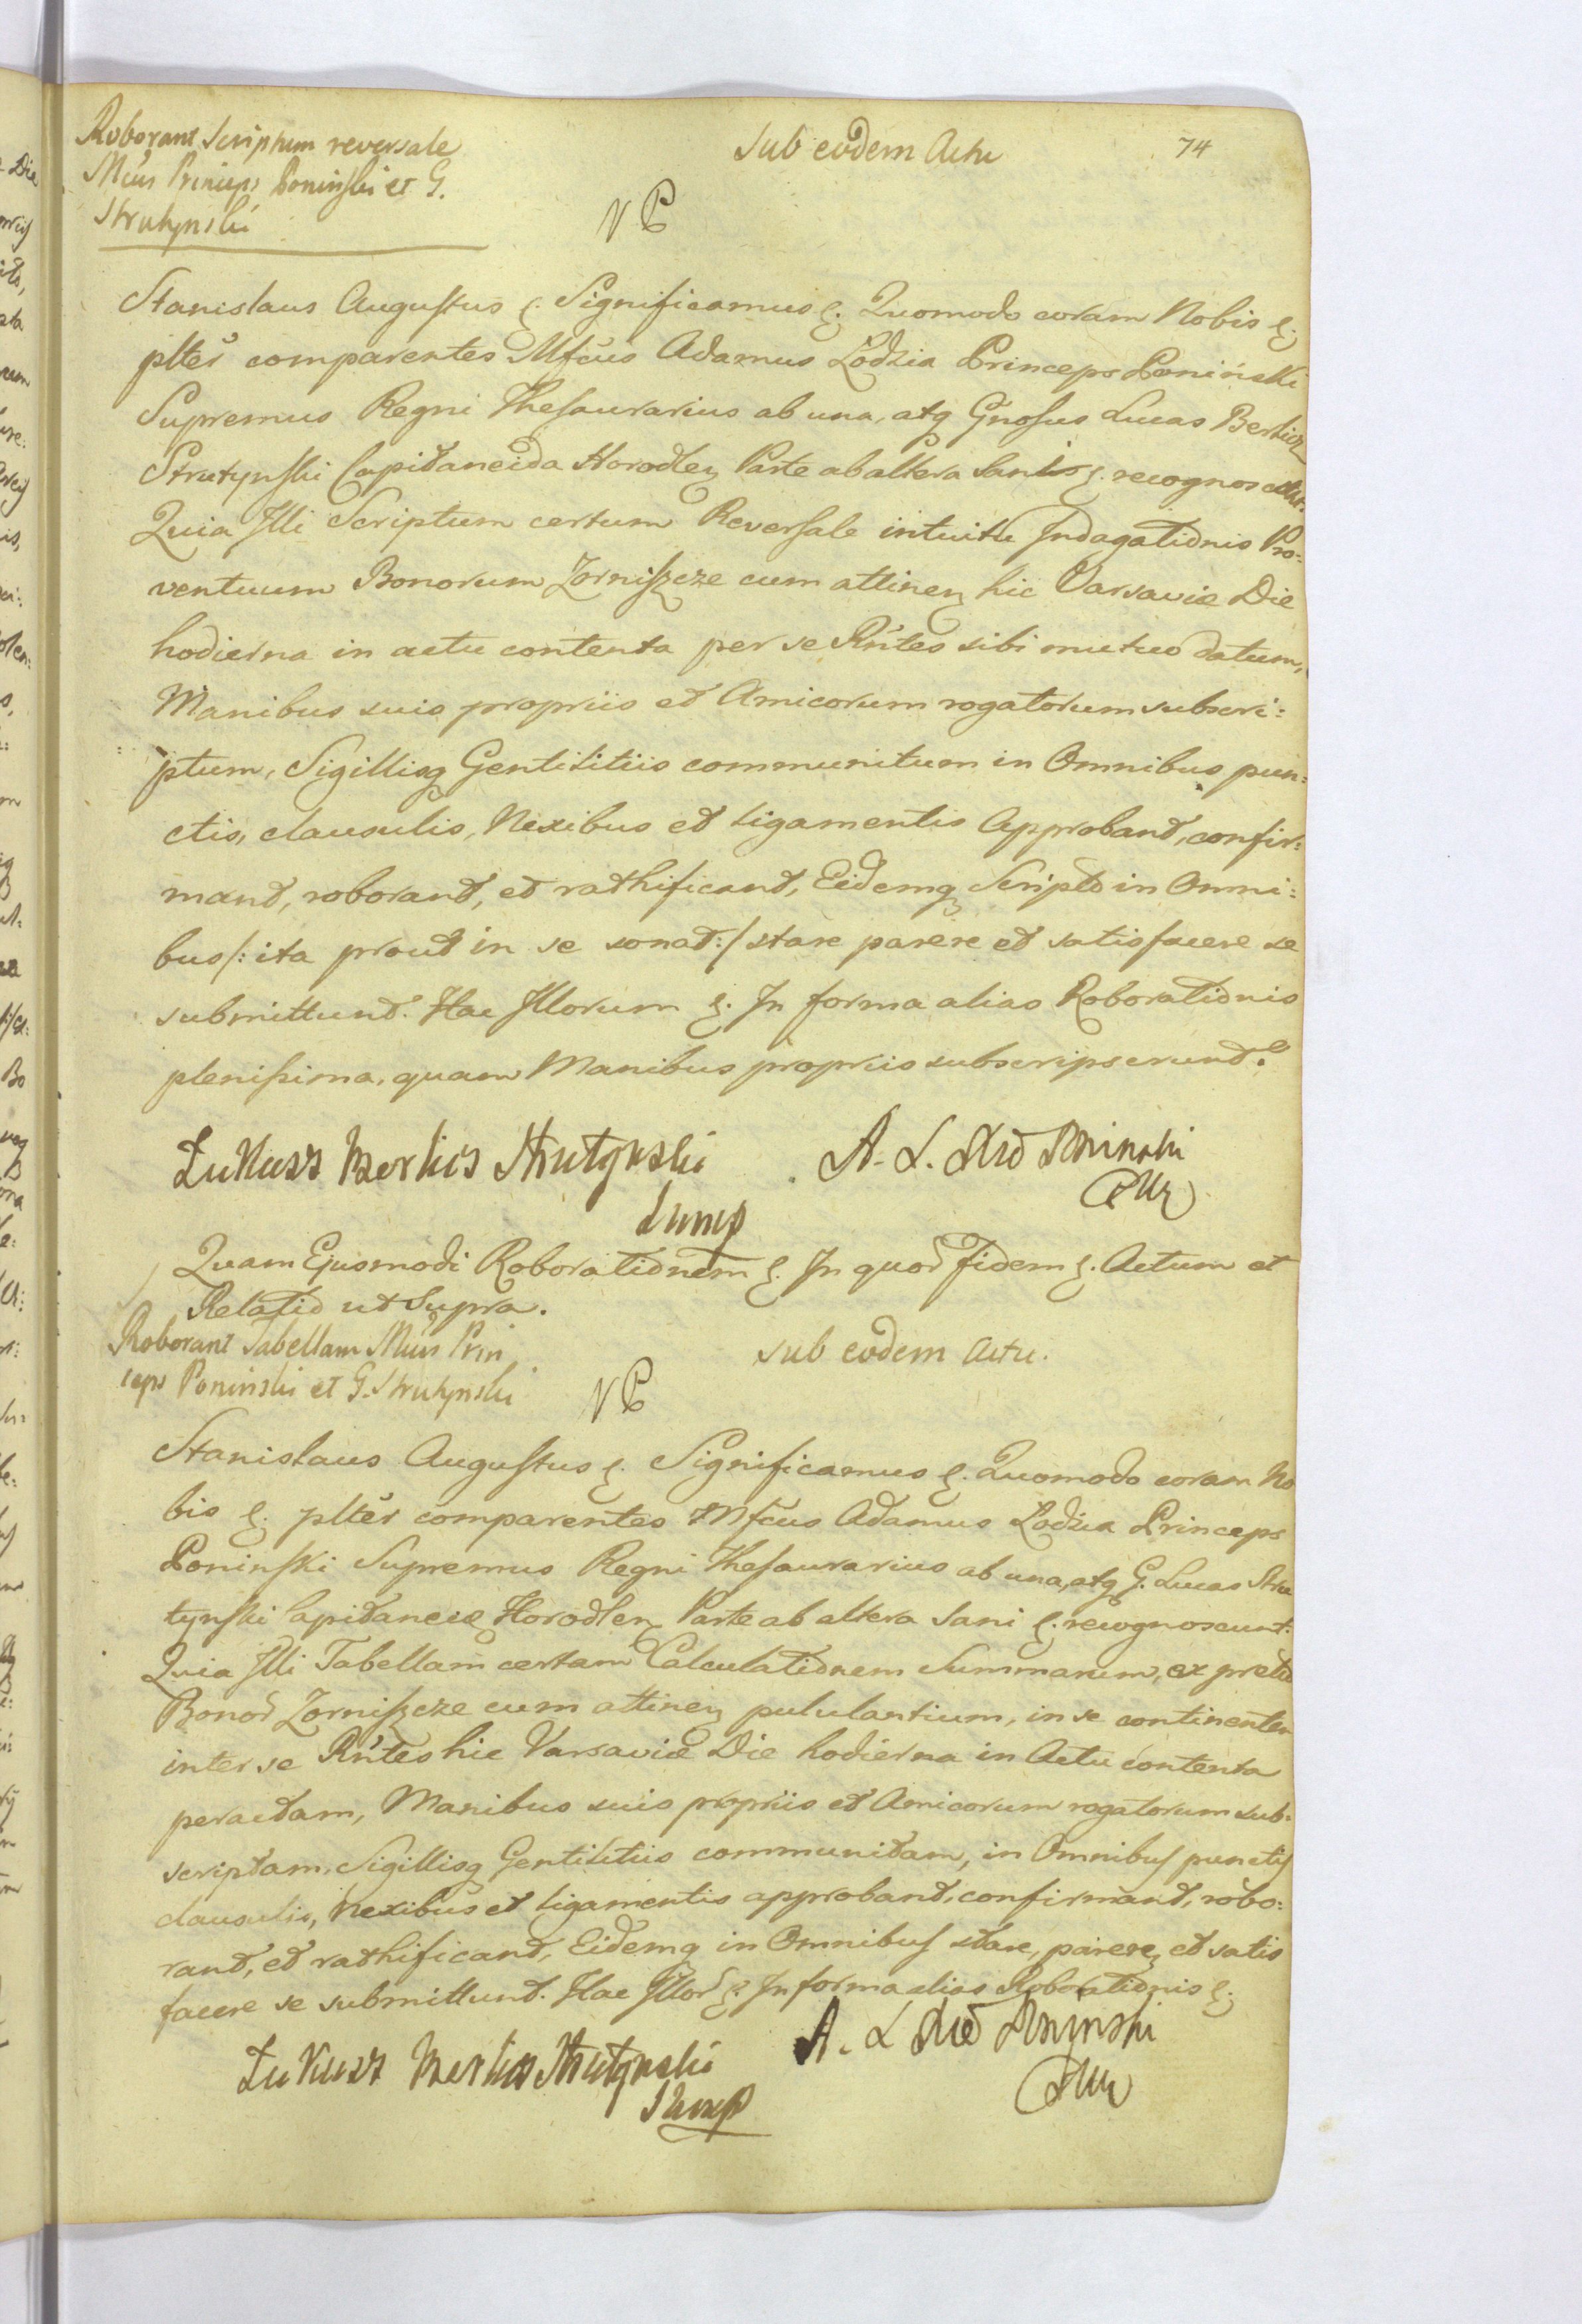 Roborant Scriptum reversale
Mcus Princeps Poninski et G.
Strutynski
sub eodem Actu
74
Stanislaus Augustus &. Significamus &. Quomodo coram Nobis &.
pltēr comparentes Mfcus Adamus Lodzia Princeps Poniński
Supremus Regni Thesaurarius ab una, atq Gnosus Lucas Berlicz
Strutynski Capitaneida Horodlen Parte ab altera Sani &. recognoscunt.
Quia Illi Scriptum certum Reversale intuitu Indagationis Pro:
ventuum Bonorum Zorniszcze cum attinen hic Varsavie Die
hodierna in actu contenta per se Rntes sibi mutuo datum,
Manibus suis propriis et Amicorum rogatorum subscri:
ptum, Sigillisq Gentilitiis communitum in Omnibus pun:
ctis, clausulis, Nexibus et Ligamentis Approbant, confir:
mant, roborant, et rathificant, Eidemq Scripto in Omni:
bus /: ita prout in se sonat :/ stare parere et satisfacere se
submittunt. Hac Illorum &. In forma alias Roborationis
plenissima, quam Manibus propriis subscripserunt.
Lukasz Berlicz Strutynski
A. L. Poninski
Quam Ejusmodi Roborationem &. In quor Fidem &. Actum et
Relatio ut Supra.
Roborant Tabellam Mcus Prin
ceps Poninski et G. Strutynski
sub eodem Actu.
Stanislaus Augustus &. Significamus &. Quomodo coram No
bis &. pltēr comparentes Mfcus Adamus Lodzia Princeps
Poninski Supremus Regni Thesaurarius ab una, atq G. Lucas Stru
tynski Capitaneide Horodlen Parte ab altera Sani &. recognoscunt:
Quia Illi Tabellam certam Calculationem Summarum, ex pretio
Bonor Zorniszcze cum attinen pululantium, in se continenten
inter se Rntes hic Varsavie Die hodierna in Actu contenta
peractam, Manibus suis propriis et Amicorum rogatorum sub:
scriptam, Sigillisq Gentilitiis communitam, in Omnibus punctis
clausulis, Nexibus et Ligamentis approbant, confirmant, robo:
rant, et rathificant, Eidemq in Omnibus stare, parere, et satis
facere se submittunt. Hac Illor &. In forma alias Roborationis &.
Lukasz Berlicz Strutynski
A. L. Poninski